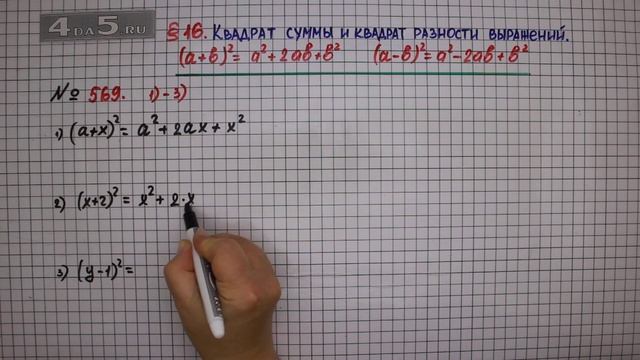 4DA5.RU
§16. Квадрат суммы и квадрат разности выражений.
(a+b)² = a²+2ab+b² (a-b)² = a²-2ab+b²
№ 569. 1)-3)
1) (a+x)² = a²+2ax+x²
2) (x+2)² = x²+2·x
3) (y-1)² =